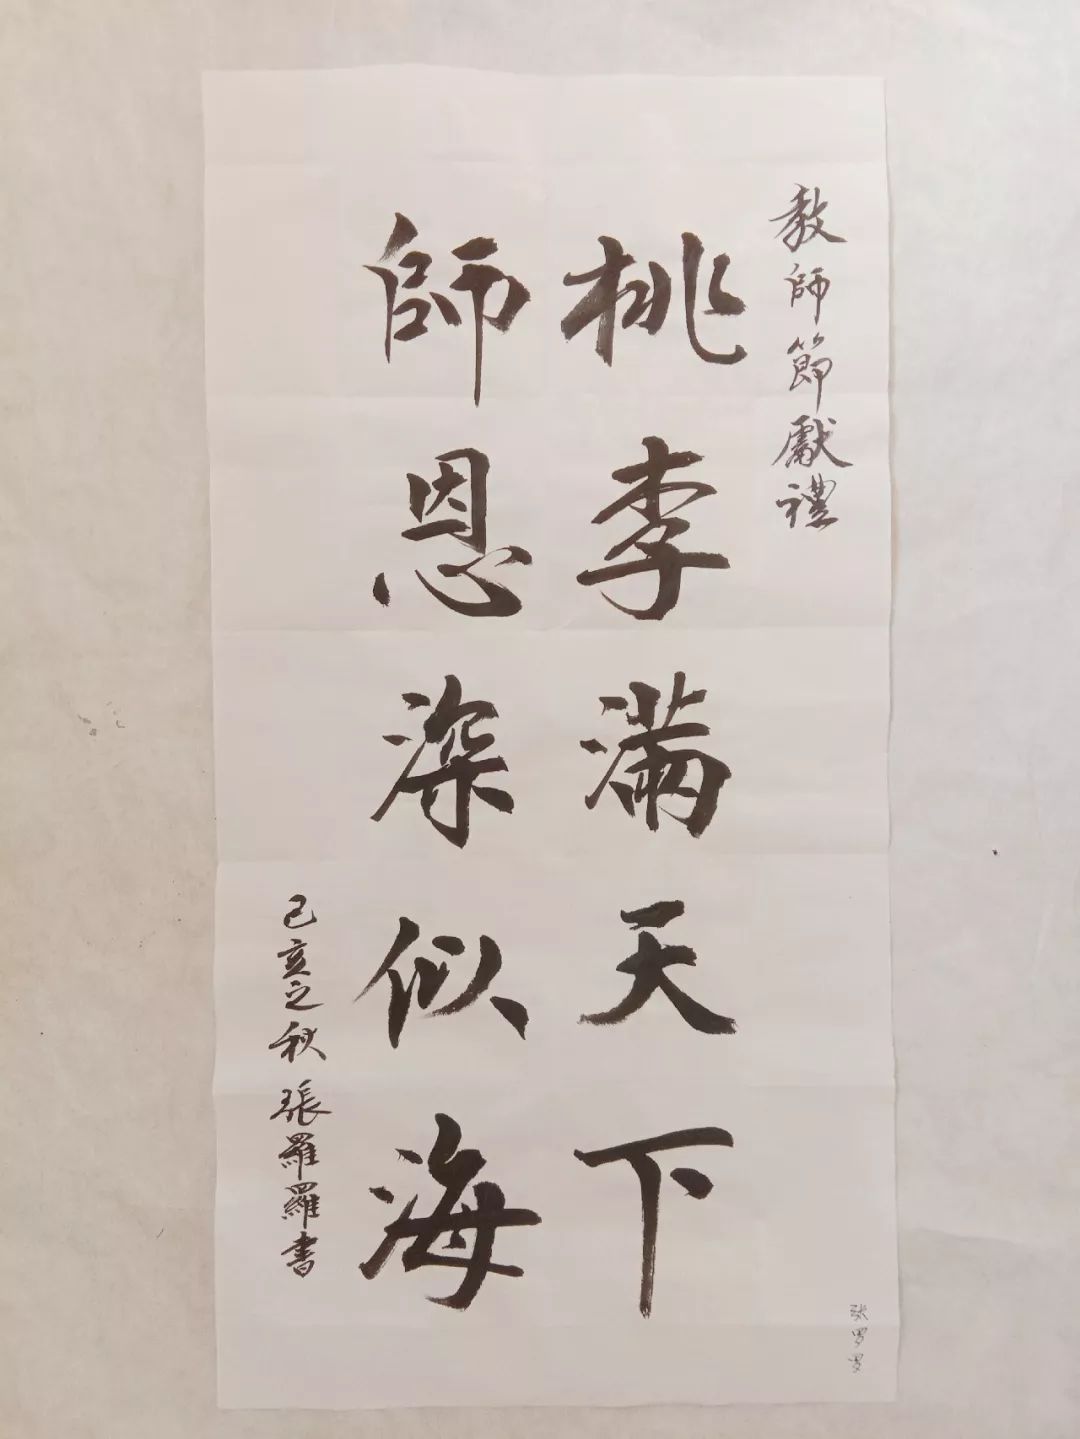 教師節獻禮
桃李滿天下
師恩深似海
己亥之秋張羅羅書
张罗罗